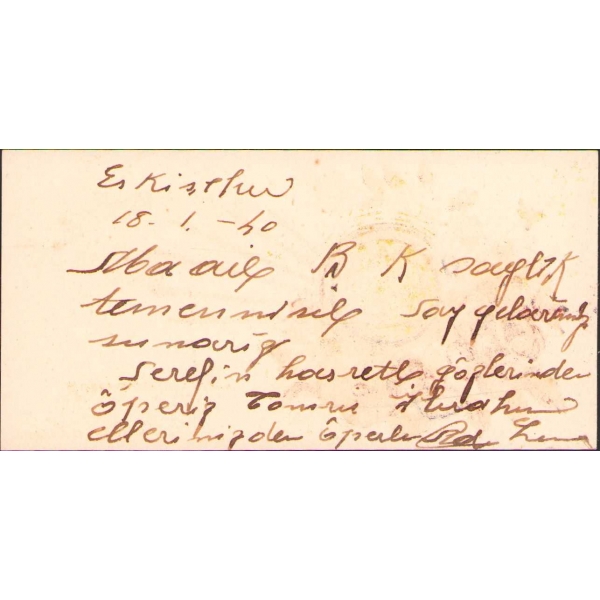 Eskisehir
18. 1. -40
aile B K saglık
temennisile saygılarımızı
sunarız
Serefin hasretle gözlerinden
öperiz Tomris İbrahim
ellerinizden öperler